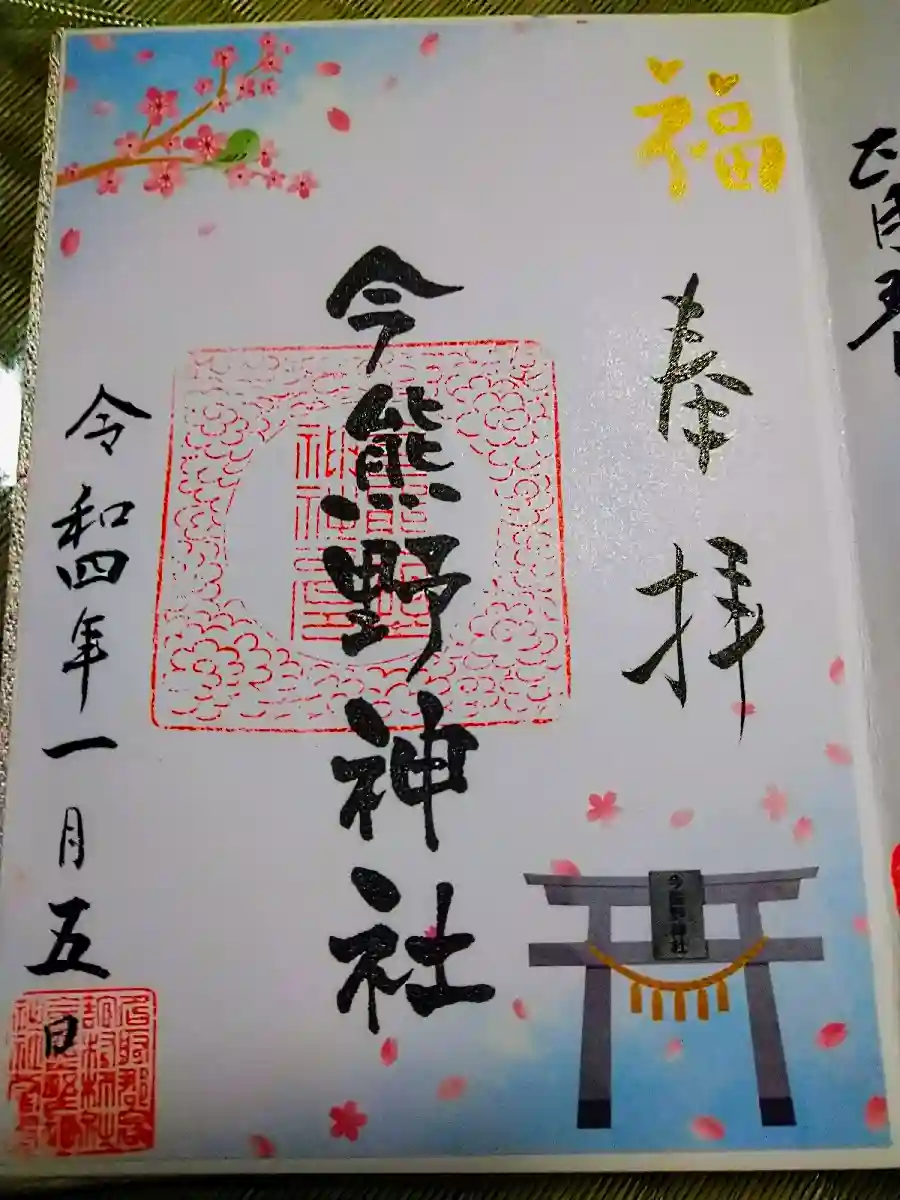 福
奉拝
今熊野神社
令和四年一月五日
今熊野神社